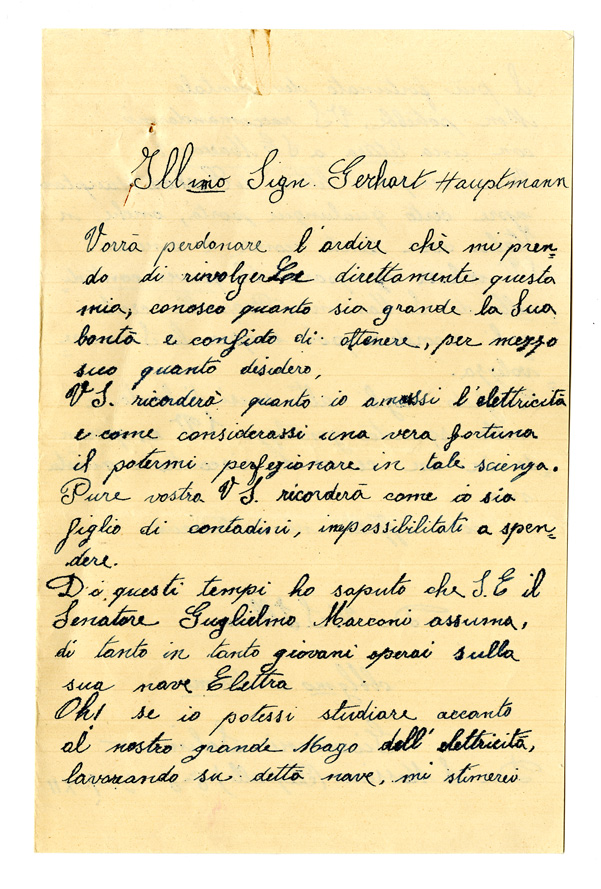 Illimo Sign. Gerhart Hauptmann
Vorrà perdonare l'ardire chè mi pren=
do di rivolgerLe direttamente questa
mia, conosco quanto sia grande la Sua
bontà e confido di ottenere, per mezzo
suo quanto desidero,
V S. ricorderà quanto io amassi l'elettricità
e come considerassi una vera fortuna
il potermi perfezionare in tale scienza.
Pure vostra V S. ricorderà come io sia
figlio di contadini, impossibilitati a spen=
dere.
Di questi tempi ho saputo che S.E il
Senatore Guglielmo Marconi assuma,
di tanto in tanto giovani operai sulla
sua nave Elettra
Oh! se io potessi studiare accanto
al nostro grande Mago dell'elettricità,
lavorando su detta nave, mi stimerei